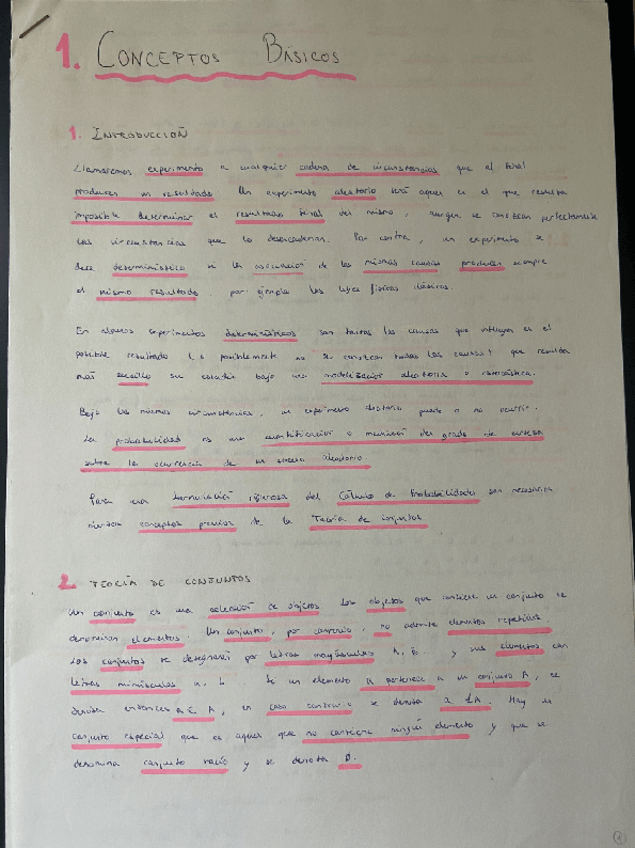 1. CONCEPTOS BÁSICOS
1. INTRODUCCIÓN
Llamaremos experimento a cualquier cadena de circunstancias que al final
producen un resultado. Un experimento aleatorio será aquel en el que resulta
imposible determinar el resultado final del mismo, aunque se conozcan perfectamente
las circunstancias que lo desencadenan. Por contra, un experimento se
dice determinístico si la de las mismas causas producen siempre
el mismo resultado. por ejemplo las leyes físicas clásicas.
En algunos experimentos determinísticos son tantas las causas que influyen en el
posible resultado ( o posiblemente no se conozcan todas las causas) que resulta
más sencillo su estudio bajo una modelización aleatoria o estocástica.
Bajo las mismas circunstancias, un experimento aleatorio puede o no ocurrir.
La probabilidad es una cuantificación o medición del grado de certeza
sobre la ocurrencia de un suceso aleatorio.
Para una formulación rigurosa del Cálculo de Probabilidades son necesarios
conceptos previos de la Teoría de conjuntos
2. TEORÍA DE CONJUNTOS
Un conjunto es una colección de objetos. Los objetos que contiene un conjunto se
denominan elementos. Un conjunto, por convenio, no admite elementos repetidos.
Los conjuntos se designarán por letras mayúsculas A, B.. y sus elementos con
letras minúsculas a, b. Si un elemento a pertenece a un conjunto A, se
denota entonces a ∈ A, en caso contrario se denota a ∉ A. Hay un
conjunto especial que es aquel que no contiene ningún elemento y que se
denomina conjunto vacío y se denota ∅.